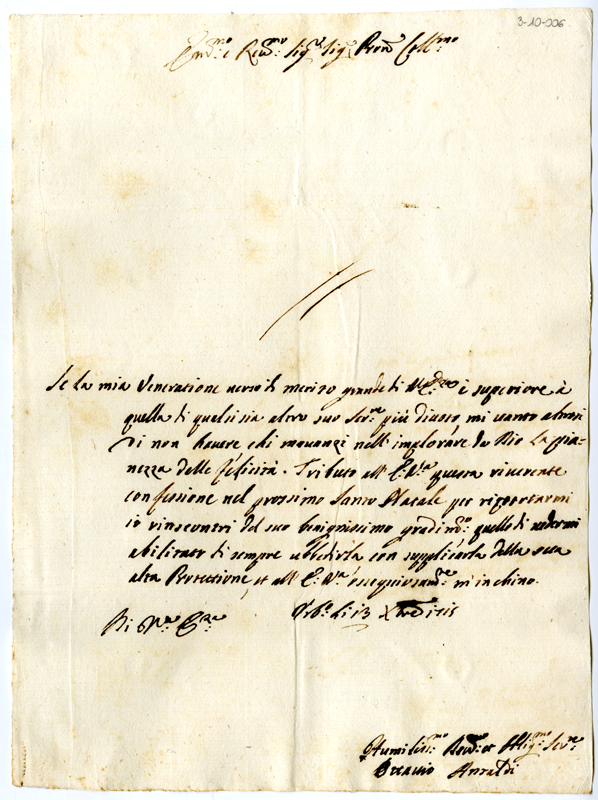 3-10-006
Em.mo e Rev.mo Sig.re Sig.re Pron Coll.mo
Se La mia Veneratione verso il merito grande di V. è superiore à
quella di qualsisia altro suo Ser.re più divoto, mi vanto altresi
di non havere chi m'avanzi nell'implorare da Dio La pie-
nezza delle felicità. Tributo all'E. V.ra questa riverente
confessione nel prossimo Santo Natale per riportarmi
in rincontri del suo benignissimo gradim.to quello di vedermi
abilitato di sempre ubbedirla con supplicarla della sua
alta Protettione, et all'E. V.ra ossequiosam.te m'inchino.
Di V.ra E.za Urb.o Li 13
Humiliss.mo Dev.mo et Oblig.mo Ser.re